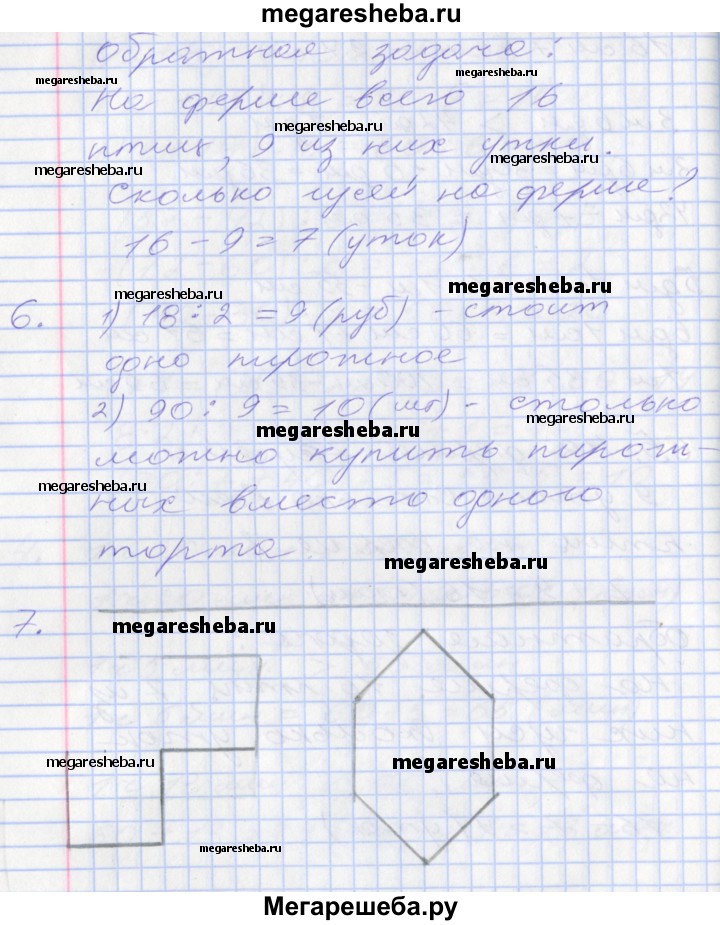 megaresheba.ru
обратная задача:
megaresheba.ru
megaresheba.ru
На ферме всего 16
megaresheba.ru
птиц, 9 из них утки.
megaresheba.ru
megaresheba.ru
Сколько гусей на ферме?
16 - 9 = 7 (уток)
megaresheba.ru
megaresheba.ru
6. 1) 18 : 2 = 9 (руб) - стоит
одно пирожное
2) 90 : 9 = 10 (шт) - столько
megaresheba.ru
megaresheba.ru
можно купить пирож-
megaresheba.ru
ных вместо одного
торта.
megaresheba.ru
7.
megaresheba.ru
megaresheba.ru
megaresheba.ru
megaresheba.ru
Мегарешеба.ру